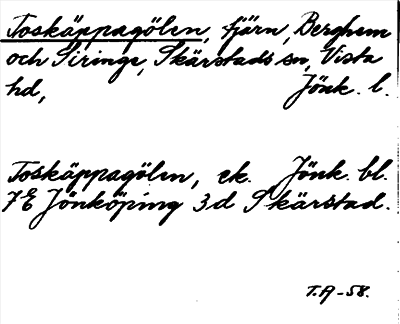 Toskäppagölen, tjärn, Berghem
och Siringe, Skärstads sn, Vista
hd, Jönk. l.
Toskäppagölen, ek. Jönk. bl.
7E Jönköping 3d Skärstad.
T.A-58.